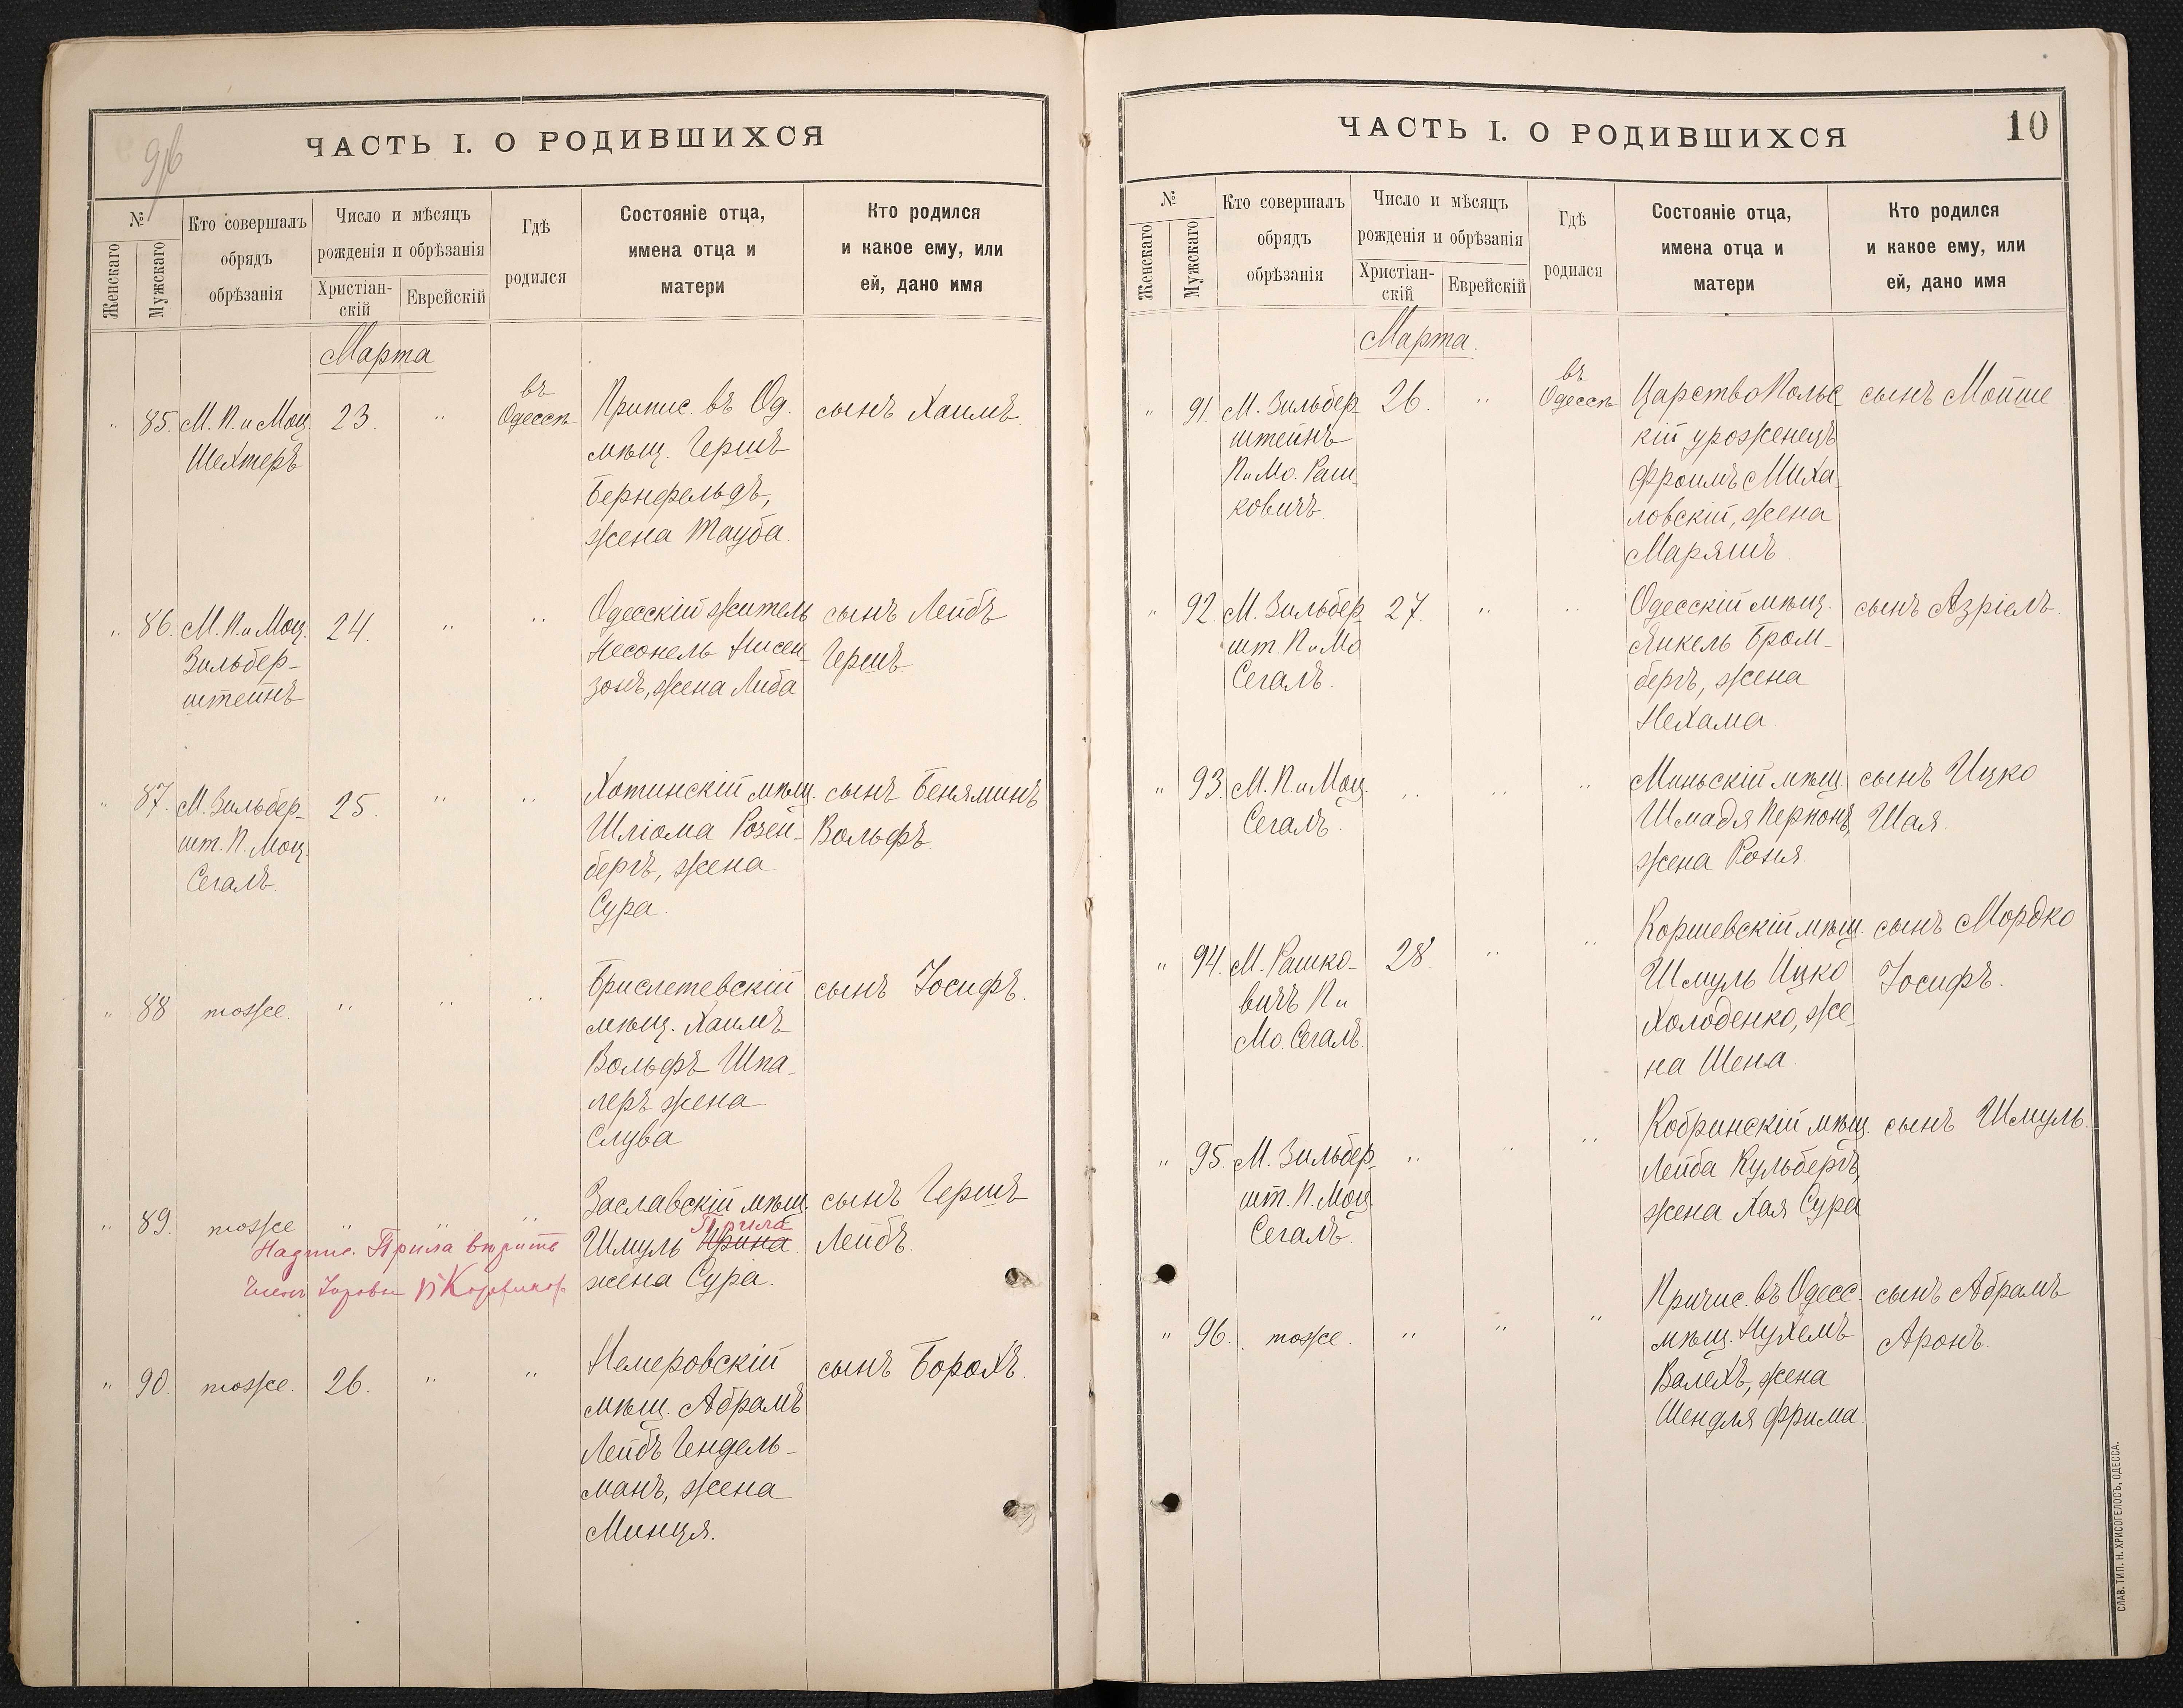 9/б
ЧАСТЬ I. О РОДИВШИХСЯ
№
Женскаго
Мужскаго
Кто совершалъ
обрядъ
обрѣзанія
Число и мѣсяцъ
рожденія и обрѣзанія
Христіан-
скій
Еврейскій
Гдѣ
родился
Состояніе отца,
имена отца и
матери
Кто родился
и какое ему, или
ей, дано имя
Марта
" 85. М. П. и Моц.
Шехтеръ
23. "
въ
Одессѣ
Припис. въ Од.
мѣщ. Гершъ
Бернфельдъ,
жена Тауба.
сынъ Хаимъ.
" 86. М. П. и Моц.
Зильбер-
штейнъ
24. " "
Одесскій житель
Несонель Нисен-
зонъ, жена Либа
сынъ Лейбъ
Гершъ
" 87. М. Зильбер-
шт. П. Моц.
Сегалъ.
25. " "
Хотинскій мѣщ.
Шліома Розен-
бергъ, жена
Сура.
сынъ Беняминъ
Вольфъ.
" 88 тоже. " " "
Брислетевскій
мѣщ. Хаимъ
Вольфъ Шпа-
леръ жена
Слува
сынъ Іосифъ.
" 89. тоже " " "
Заславскій мѣщ.
Прила
Шмуль Ирина.
жена Сура.
сынъ Гершъ
Лейбъ.
Надпис. Прила вѣрить
" 90. тоже. 26. " "
Немеровскій
мѣщ. Абрамъ
Лейбъ Гендель-
манъ, жена
Минця.
сынъ Борохъ.
ЧАСТЬ I. О РОДИВШИХСЯ
10
№
Женскаго
Мужскаго
Кто совершалъ
обрядъ
обрѣзанія
Число и мѣсяцъ
рожденія и обрѣзанія
Христіан-
скій
Еврейскій
Гдѣ
родился
Состояніе отца,
имена отца и
матери
Кто родился
и какое ему, или
ей, дано имя
Марта.
" 91. М. Зильбер-
штейнъ
П и Мо. Раш-
ковичъ.
26. "
въ
Одессѣ
Царство Польс-
кій уроженецъ
Фроимъ Миха-
ловскій, жена
Маряшъ.
сынъ Мойше
" 92. М. Зильбер-
шт. П и Мо
Сегалъ.
27. " "
Одесскій мѣщ.
Янкель Бром-
бергъ, жена
Нехама
сынъ Азріелъ.
" 93. М. П. и Моц.
Сегалъ.
" " "
Миньскій мѣщ.
Шмадя Пернонъ,
жена Роня.
сынъ Ицко
Шая.
" 94. М. Рашко-
вичъ П и
Мо. Сегалъ.
28. " "
Коршевскій мѣщ.
Шмуль Ицко
Холоденко, же-
на Шена.
сынъ Мордко
Іосифъ.
" 95. М. Зильбер-
шт. П. Моц.
Сегалъ.
" " "
Кобринскій мѣщ.
Лейба Кульбергъ,
жена Хая Сура
сынъ Шмуль.
" 96. тоже. " " "
Причис. въ Одесс.
мѣщ. Нухемъ
Валехъ, жена
Шендля Фрима.
сынъ Абрамъ
Аронъ.
СЛАВ. ТИП. Н. ХРИСОГЕЛОСЪ, ОДЕССА.